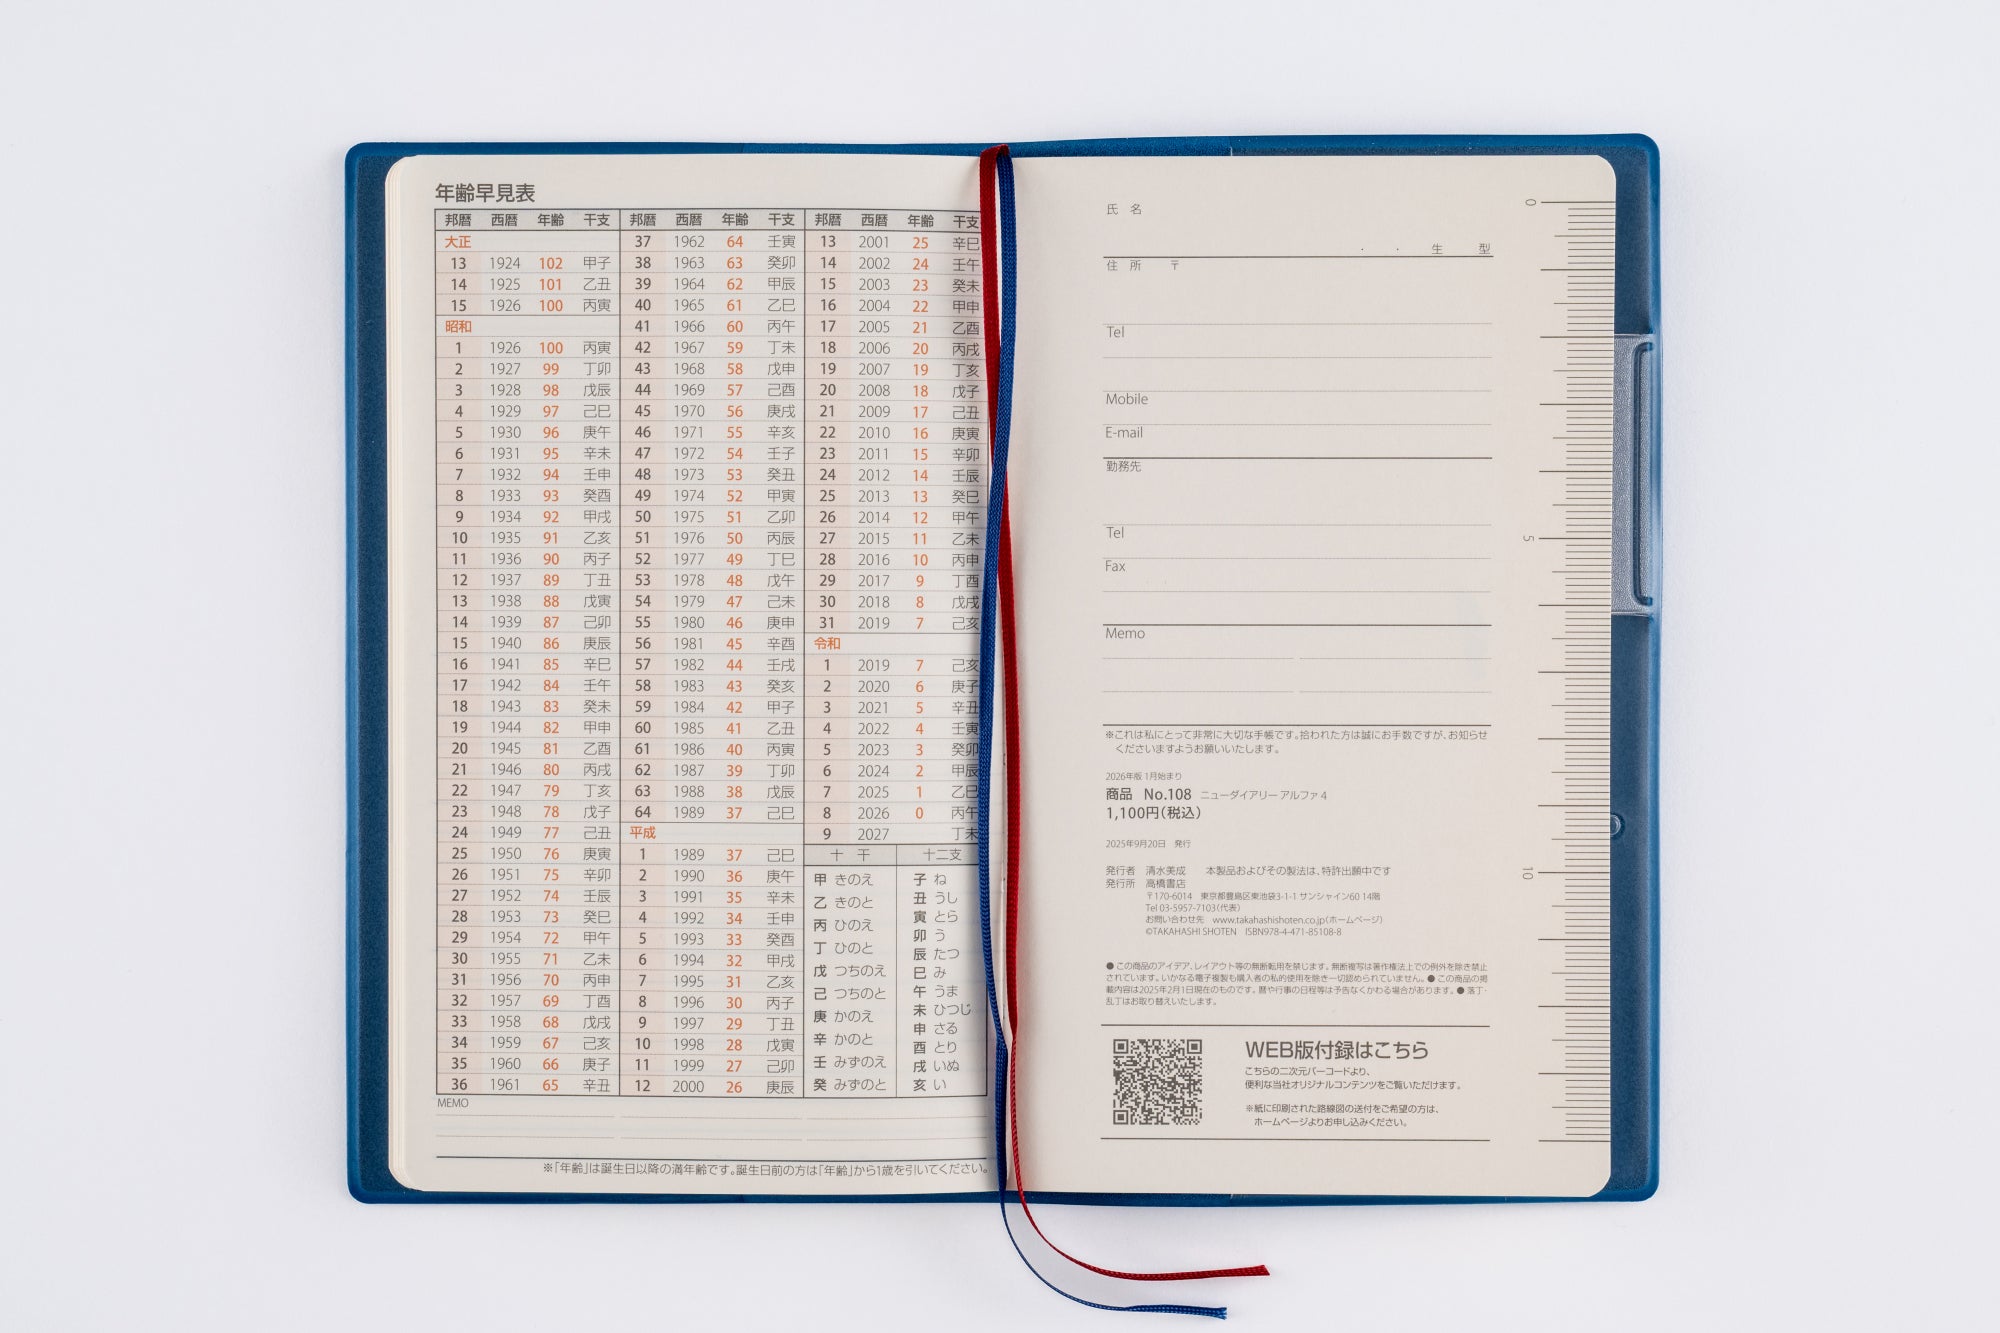 年齢早見表
邦暦 西暦 年齢 干支
大正
13 1924 102 甲子
14 1925 101 乙丑
15 1926 100 丙寅
昭和
1 1926 100 丙寅
2 1927 99 丁卯
3 1928 98 戊辰
4 1929 97 己巳
5 1930 96 庚午
6 1931 95 辛未
7 1932 94 壬申
8 1933 93 癸酉
9 1934 92 甲戌
10 1935 91 乙亥
11 1936 90 丙子
12 1937 89 丁丑
13 1938 88 戊寅
14 1939 87 己卯
15 1940 86 庚辰
16 1941 85 辛巳
17 1942 84 壬午
18 1943 83 癸未
19 1944 82 甲申
20 1945 81 乙酉
21 1946 80 丙戌
22 1947 79 丁亥
23 1948 78 戊子
24 1949 77 己丑
25 1950 76 庚寅
26 1951 75 辛卯
27 1952 74 壬辰
28 1953 73 癸巳
29 1954 72 甲午
30 1955 71 乙未
31 1956 70 丙申
32 1957 69 丁酉
33 1958 68 戊戌
34 1959 67 己亥
35 1960 66 庚子
36 1961 65 辛丑
邦暦 西暦 年齢 干支
37 1962 64 壬寅
38 1963 63 癸卯
39 1964 62 甲辰
40 1965 61 乙巳
41 1966 60 丙午
42 1967 59 丁未
43 1968 58 戊申
44 1969 57 己酉
45 1970 56 庚戌
46 1971 55 辛亥
47 1972 54 壬子
48 1973 53 癸丑
49 1974 52 甲寅
50 1975 51 乙卯
51 1976 50 丙辰
52 1977 49 丁巳
53 1978 48 戊午
54 1979 47 己未
55 1980 46 庚申
56 1981 45 辛酉
57 1982 44 壬戌
58 1983 43 癸亥
59 1984 42 甲子
60 1985 41 乙丑
61 1986 40 丙寅
62 1987 39 丁卯
63 1988 38 戊辰
64 1989 37 己巳
平成
1 1989 37 己巳
2 1990 36 庚午
3 1991 35 辛未
4 1992 34 壬申
5 1993 33 癸酉
6 1994 32 甲戌
7 1995 31 乙亥
8 1996 30 丙子
9 1997 29 丁丑
10 1998 28 戊寅
11 1999 27 己卯
12 2000 26 庚辰
邦暦 西暦 年齢 干支
13 2001 25 辛巳
14 2002 24 壬午
15 2003 23 癸未
16 2004 22 甲申
17 2005 21 乙酉
18 2006 20 丙戌
19 2007 19 丁亥
20 2008 18 戊子
21 2009 17 己丑
22 2010 16 庚寅
23 2011 15 辛卯
24 2012 14 壬辰
25 2013 13 癸巳
26 2014 12 甲午
27 2015 11 乙未
28 2016 10 丙申
29 2017 9 丁酉
30 2018 8 戊戌
31 2019 7 己亥
令和
1 2019 7 己亥
2 2020 6 庚子
3 2021 5 辛丑
4 2022 4 壬寅
5 2023 3 癸卯
6 2024 2 甲辰
7 2025 1 乙巳
8 2026 0 丙午
9 2027 丁未
十干
甲 きのえ
乙 きのと
丙 ひのえ
丁 ひのと
戊 つちのえ
己 つちのと
庚 かのえ
辛 かのと
壬 みずのえ
癸 みずのと
十二支
子 ね
丑 うし
寅 とら
卯 う
辰 たつ
巳 み
午 うま
未 ひつじ
申 さる
酉 とり
戌 いぬ
亥 い
MEMO
※「年齢」は誕生日以降の満年齢です。誕生日前の方は「年齢」から1歳を引いてください。
氏 名
・ ・ 生 型
住 所 〒
Tel
Mobile
E-mail
勤務先
Tel
Fax
Memo
※これは私にとって非常に大切な手帳です。拾われた方は誠にお手数ですが、お知らせ
くださいますようお願いいたします。
2026年版 1月始まり
商品 No.108 ニューダイアリー アルファ 4
1,100円(税込)
2025年9月20日 発行
発行者 清水美成 本製品およびその製法は、特許出願中です
発行所 高橋書店
〒170-6014 東京都豊島区東池袋3-1-1 サンシャイン60 14階
Tel 03-5957-7103(代表)
お問い合わせ先 www.takahashishoten.co.jp(ホームページ)
©TAKAHASHI SHOTEN ISBN978-4-471-85108-8
● この商品のアイデア、レイアウト等の無断転用を禁じます。無断複写は著作権法上での例外を除き禁止
されています。いかなる電子複製も購入者の私的使用を除き一切認められていません。● この商品の掲
載内容は2025年2月1日現在のものです。暦や行事の日程等は予告なくかわる場合があります。● 落丁・
乱丁はお取り替えいたします。
WEB版付録はこちら
こちらの二次元バーコードより、
便利な当社オリジナルコンテンツをご覧いただけます。
※紙に印刷された路線図の送付をご希望の方は、
ホームページよりお申し込みください。
0
5
10